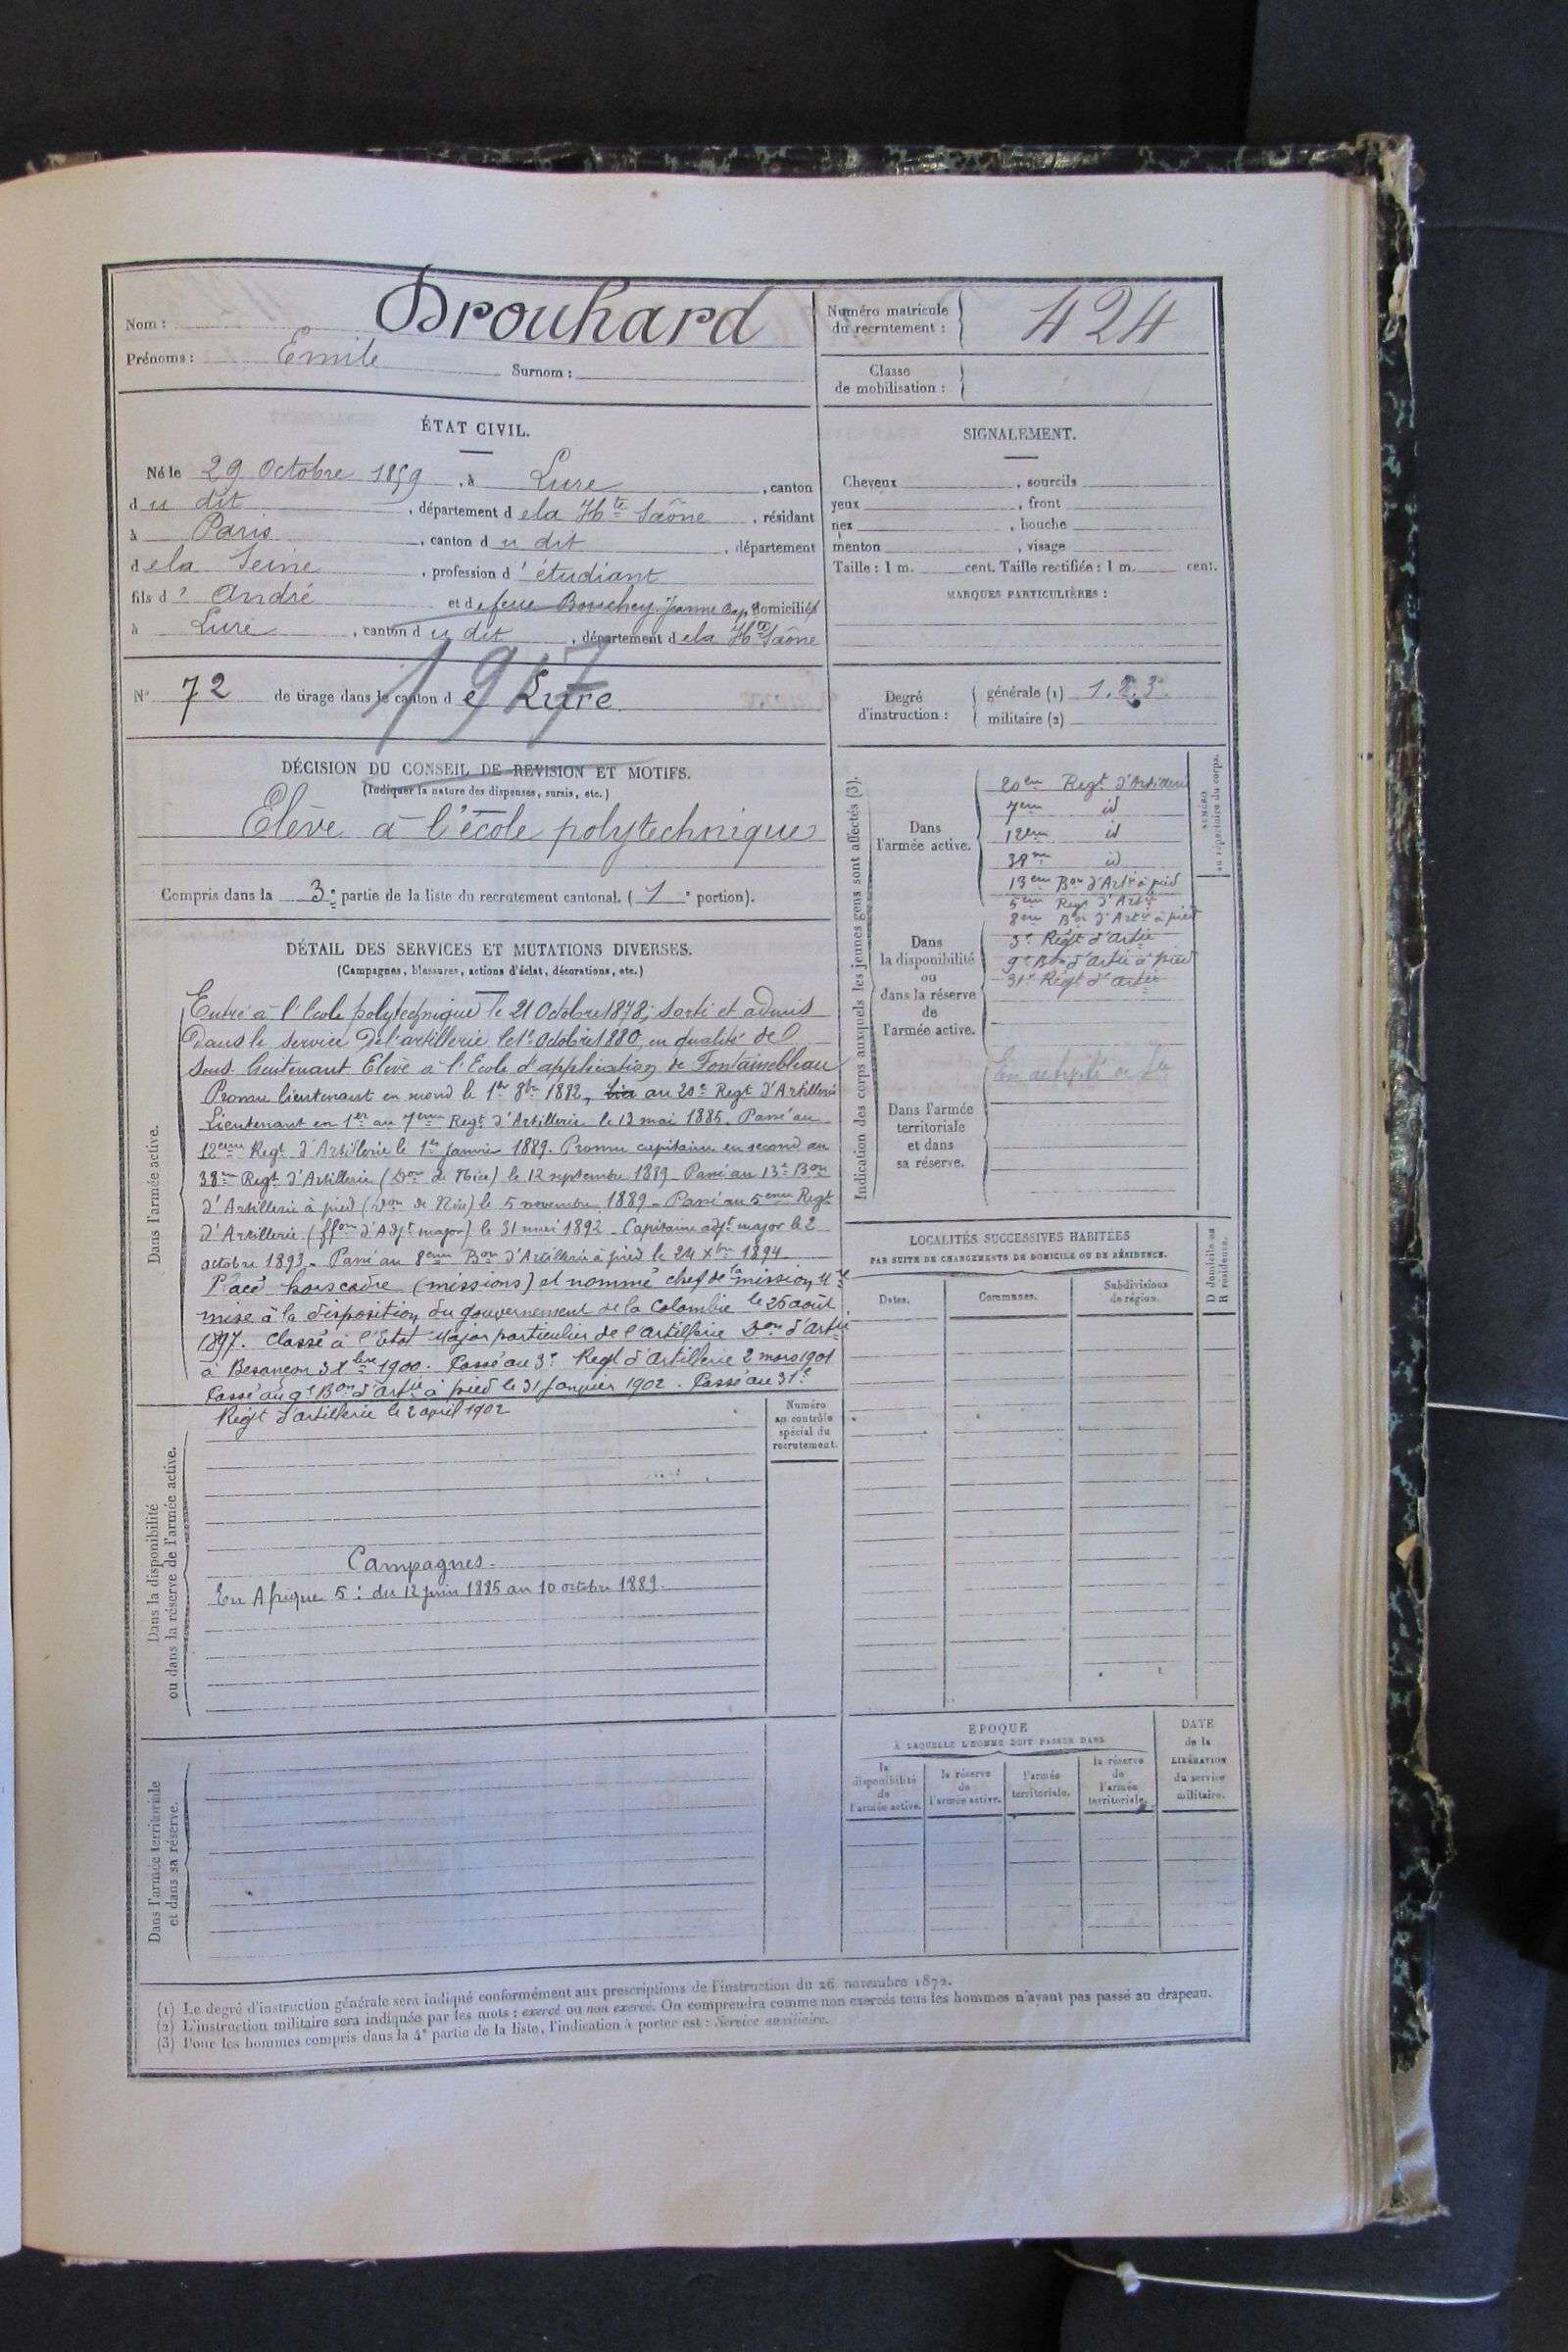 Nom : Drouhard
Prénoms : Emile Surnom :
Numéro matricule du recrutement : 424
Classe de mobilisation :
ÉTAT CIVIL.
Né le 29 Octobre 1859, à Lure, canton
du dit, département de la Hte Saône, résidant
à Paris, canton du dit, département
de la Seine, profession d'étudiant
fils d'André et de feue Bouchey Jeanne Bap, domiciliés
à Lure, canton du dit, département de la Hte Saône
N° 72 de tirage dans le canton de Lure
1947
DÉCISION DU CONSEIL DE REVISION ET MOTIFS.
(Indiquer la nature des dispenses, sursis, etc.)
Elève à l'école polytechnique
Compris dans la 3e partie de la liste du recrutement cantonal. (1e portion).
DÉTAIL DES SERVICES ET MUTATIONS DIVERSES.
(Campagnes, blessures, actions d'éclat, décorations, etc.)
Dans l'armée active.
Entré à l'Ecole polytechnique le 21 Octobre 1878; sorti et admis
Dans le service de l'artillerie le 1er Octobre 1880, en qualité de
Sous-lieutenant Elève à l'Ecole d'application de Fontainebleau
Promu lieutenant en second le 1er 8bre 1882, au 20e Regt d'Artillerie
Lieutenant en 1er au 7eme Regt d'Artillerie le 13 mai 1885. Passé au
12eme Regt d'Artillerie le 1er Janvier 1889. Promu capitaine en second au
38me Regt d'Artillerie (Don de Nice) le 12 septembre 1889 - Passé au 13e Bon
d'Artillerie à pied (Don de Nice) le 5 novembre 1889 - Passé au 5eme Regt
d'Artillerie (ffons d'Adjt major) le 31 mai 1892 - Capitaine adjt major le 2
octobre 1893 - Passé au 8eme Bon d'Artillerie à pied le 24 Xbre 1894
Placé hors cadre (missions) et nommé chef de la mission Mre
mise à la disposition du gouvernement de la Colombie le 26 août
1897. Classé à l'Etat-Major particulier de l'artillerie Don d'Artie
à Besançon 3 Xbre 1900. Passé au 3e Regt d'Artillerie 2 mars 1901
Passé au 9e Bon d'artie à pied le 31 janvier 1902. Passé au 31e
Régt d'artillerie le 2 avril 1902
Dans la disponibilité
ou dans la réserve de l'armée active.
Numéro
au contrôle
spécial du
recrutement.
Campagnes.
En Afrique 5 : du 12 juin 1885 au 10 octobre 1889.
Dans l'armée territoriale
et dans sa réserve.
SIGNALEMENT.
Cheveux , sourcils
yeux , front
nez , bouche
menton , visage
Taille : 1 m. cent. Taille rectifiée : 1 m. cent.
MARQUES PARTICULIÈRES :
Degré d'instruction : générale (1) 1.2.3.
militaire (2)
Indication des corps auxquels les jeunes gens sont affectés (3).
NUMÉRO
au répertoire du corps.
Dans
l'armée active.
20em Regt d'Artillerie
7em id
12em id
38me id
13em Bon d'Artie à pied
5em Regt d'Artie
8em Bon d'Artie à pied
3e Régt d'Artie
9e Bon d'Artie à pied
31e Régt d'Artie
Dans
la disponibilité
ou
dans la réserve
de
l'armée active.
Dans l'armée
territoriale
et dans
sa réserve.
LOCALITÉS SUCCESSIVES HABITÉES
PAR SUITE DE CHANGEMENTS DE DOMICILE OU DE RÉSIDENCE.
Dates.
Communes.
Subdivisions
de région.
D Domicile ou
R résidence.
ÉPOQUE
À LAQUELLE L'HOMME DOIT PASSER DANS
la
disponibilité
de
l'armée active.
la réserve
de
l'armée active.
l'armée
territoriale.
la réserve
de
l'armée
territoriale.
DATE
de la
LIBÉRATION
du service
militaire.
(1) Le degré d'instruction générale sera indiqué conformément aux prescriptions de l'instruction du 26 novembre 1872.
(2) L'instruction militaire sera indiquée par les mots : exercé ou non exercé. On comprendra comme non exercés tous les hommes n'ayant pas passé au drapeau.
(3) Pour les hommes compris dans la 4e partie de la liste, l'indication à porter est : Service auxiliaire.